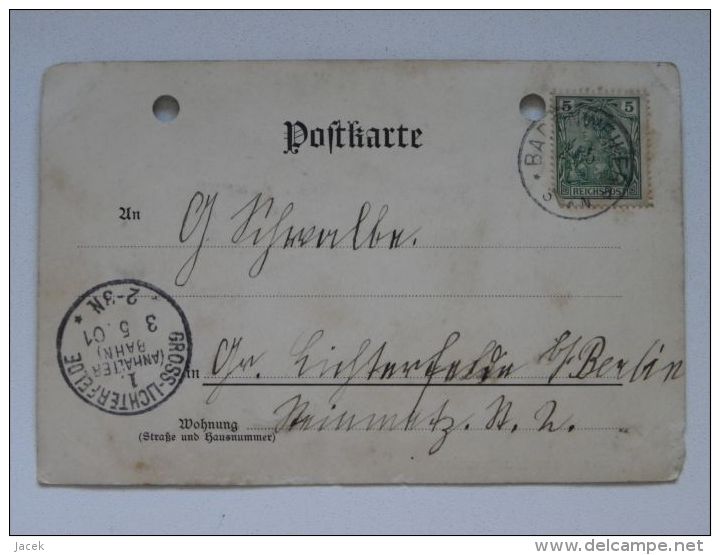 Postkarte
5 5
REICHSPOST
An G. Schwalbe.
in Gr. Lichterfelde b/Berlin
Wohnung Steinmetz. St. 2.
(Straße und Hausnummer)
GROSS-LICHTERFELDE
(ANHALTER
BAHN)
1.
3 5. 01
* 2-3N *
jacek
www.delcampe.net